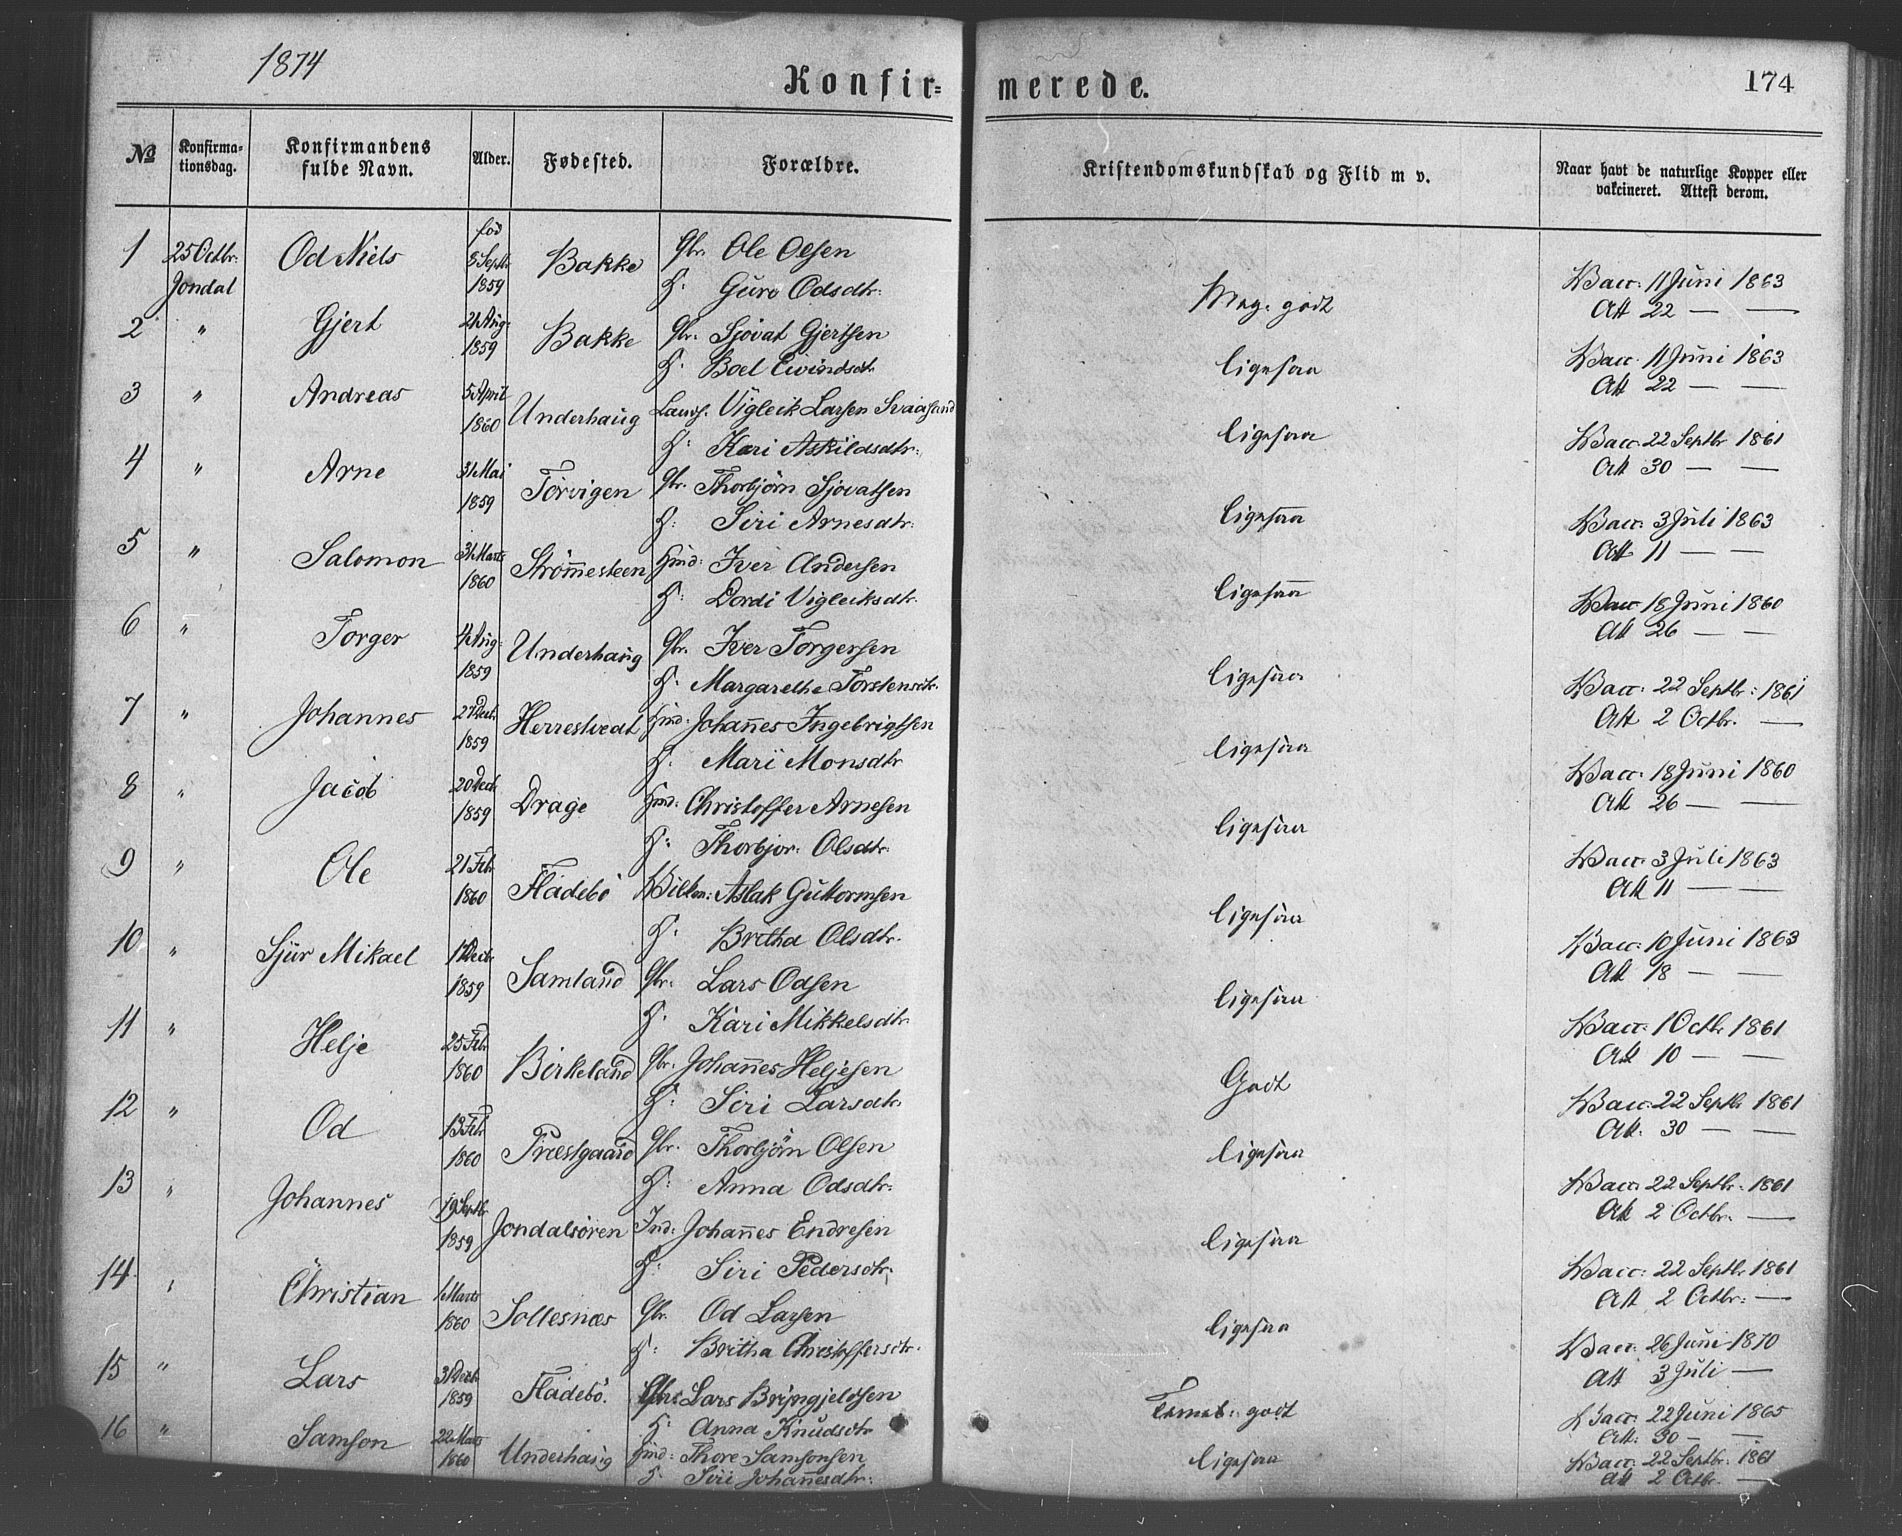 1874
Konfir=
merede.
174
No
Konfirma-
tionsdag.
Konfirmandens
fulde Navn.
Alder.
Fødested.
Forældre.
Kristendomskundskab og Flid m v.
Naar havt de naturlige Kopper eller
vakcineret. Attest derom.
1 25 Octbr: Jondal Od Niels fød 8 Septb 1859 Bakke Gbr. Ole Olsen
H: Guro Odsdtr.
Meg. godt
Vacc. 11 Juni 1863
Att 22 — —
2 " Gjert 24 Aug: 1859 Bakke Gbr. Sjovat Gjertsen
H: Boel Eivindsdtr
ligesaa
Vacc. 11 Juni 1863
Att 22 — —
3 " Andreas 5 April 1860 Underhaug Vigleik Larsen Svaasand
H: Kari Askildsdtr.
ligesaa
Vacc. 22 Septbr 1861
Att 30 — —
4 " Arne 31 Mai 1859 Torvigen Gbr. Thorbjørn Sjovatsen
H: Siri Arnesdtr.
ligesaa
Vacc. 3 Juli 1863
Att 11 — —
5 " Salomon 31 Marts 1860 Strømmesteen Hmd: Iver Andersen
H: Dordi Vigleiksdtr.
ligesaa
Vacc 18 Juni 1860
Att 26 — —
6 " Torger 4 Aug: 1859 Underhaug Gbr. Iver Torgersen
H: Margarethe Torstensdtr.
ligesaa
Vacc: 22 Septbr: 1861
Att 2 Octbr. —
7 " Johannes 27 Decb. 1859 Herrestvedt Hmd: Johannes Ingebrigtsen
H: Mari Monsdtr
ligesaa
Vacc: 18 Juni 1860
Att 26 — —
8 " Jacob 20 Decb. 1859 Drage Hmd: Christoffer Arnesen
H: Thorbjor: Olsdtr.
ligesaa
Vacc: 3 Juli 1863
Att 11 — —
9 " Ole 21 Febr. 1860 Fladebø Aslak Guttormsen
H: Britha Olsdtr.
ligesaa
Vacc: 10 Juni 1863
Att 18 — —
10 " Sjur Mikael 17 Decb. 1859 Samland Gbr. Lars Odsen
H: Kari Mikkelsdtr.
ligesaa
Vacc: 1 Octb. 1861
Att 10 — —
11 " Helje 25 Febr. 1860 Birkeland Gbr. Johannes Heljesen
H: Siri Larsdtr.
Godt
Vacc: 22 Septbr 1861
Att. 30 — —
12 " Od 13 Febr. 1860 Præstgaard Gbr. Thorbjørn Olsen
H: Anna Odsdtr.
ligesaa
Vacc: 22 Septbr. 1861
Att 2 Octbr. —
13 " Johannes 19 Septbr. 1859 Jondalsøren Ind: Johannes Endresen
H: Siri Pedersdtr.
ligesaa
Vacc: 22 Septbr 1861
Att 2 Octbr: —
14 " Christian 1 Marts 1860 Sollesnæs Gbr. Od Larsen
H: Britha Christoffersdtr.
ligesaa
Vacc: 26 Juni 1870
Att 3 Juli —
15 " Lars 31 Decb. 1859 Fladebø. Gbr: Lars Brynjeldsen
H: Anna Knudsdtr
Temmel: godt
Vacc: 22 Juni 1865
Att: 30 — —
16 " Samson 22 Marts 1860 Underhaug Hmd: Thore Samsonsen
H: Siri Johannesdtr:
ligesaa
Vacc: 22 Septbr: 1861
Att 2 Octbr. —